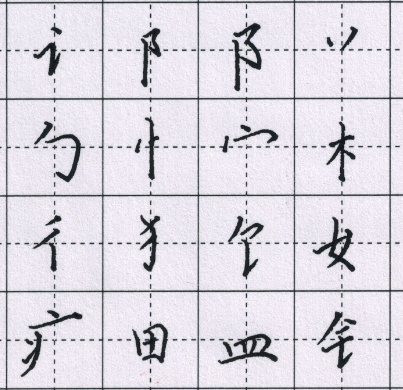 讠 阝 阝 丷
勹 忄 宀 木
彳 犭 钅 女
疒 田 皿 金